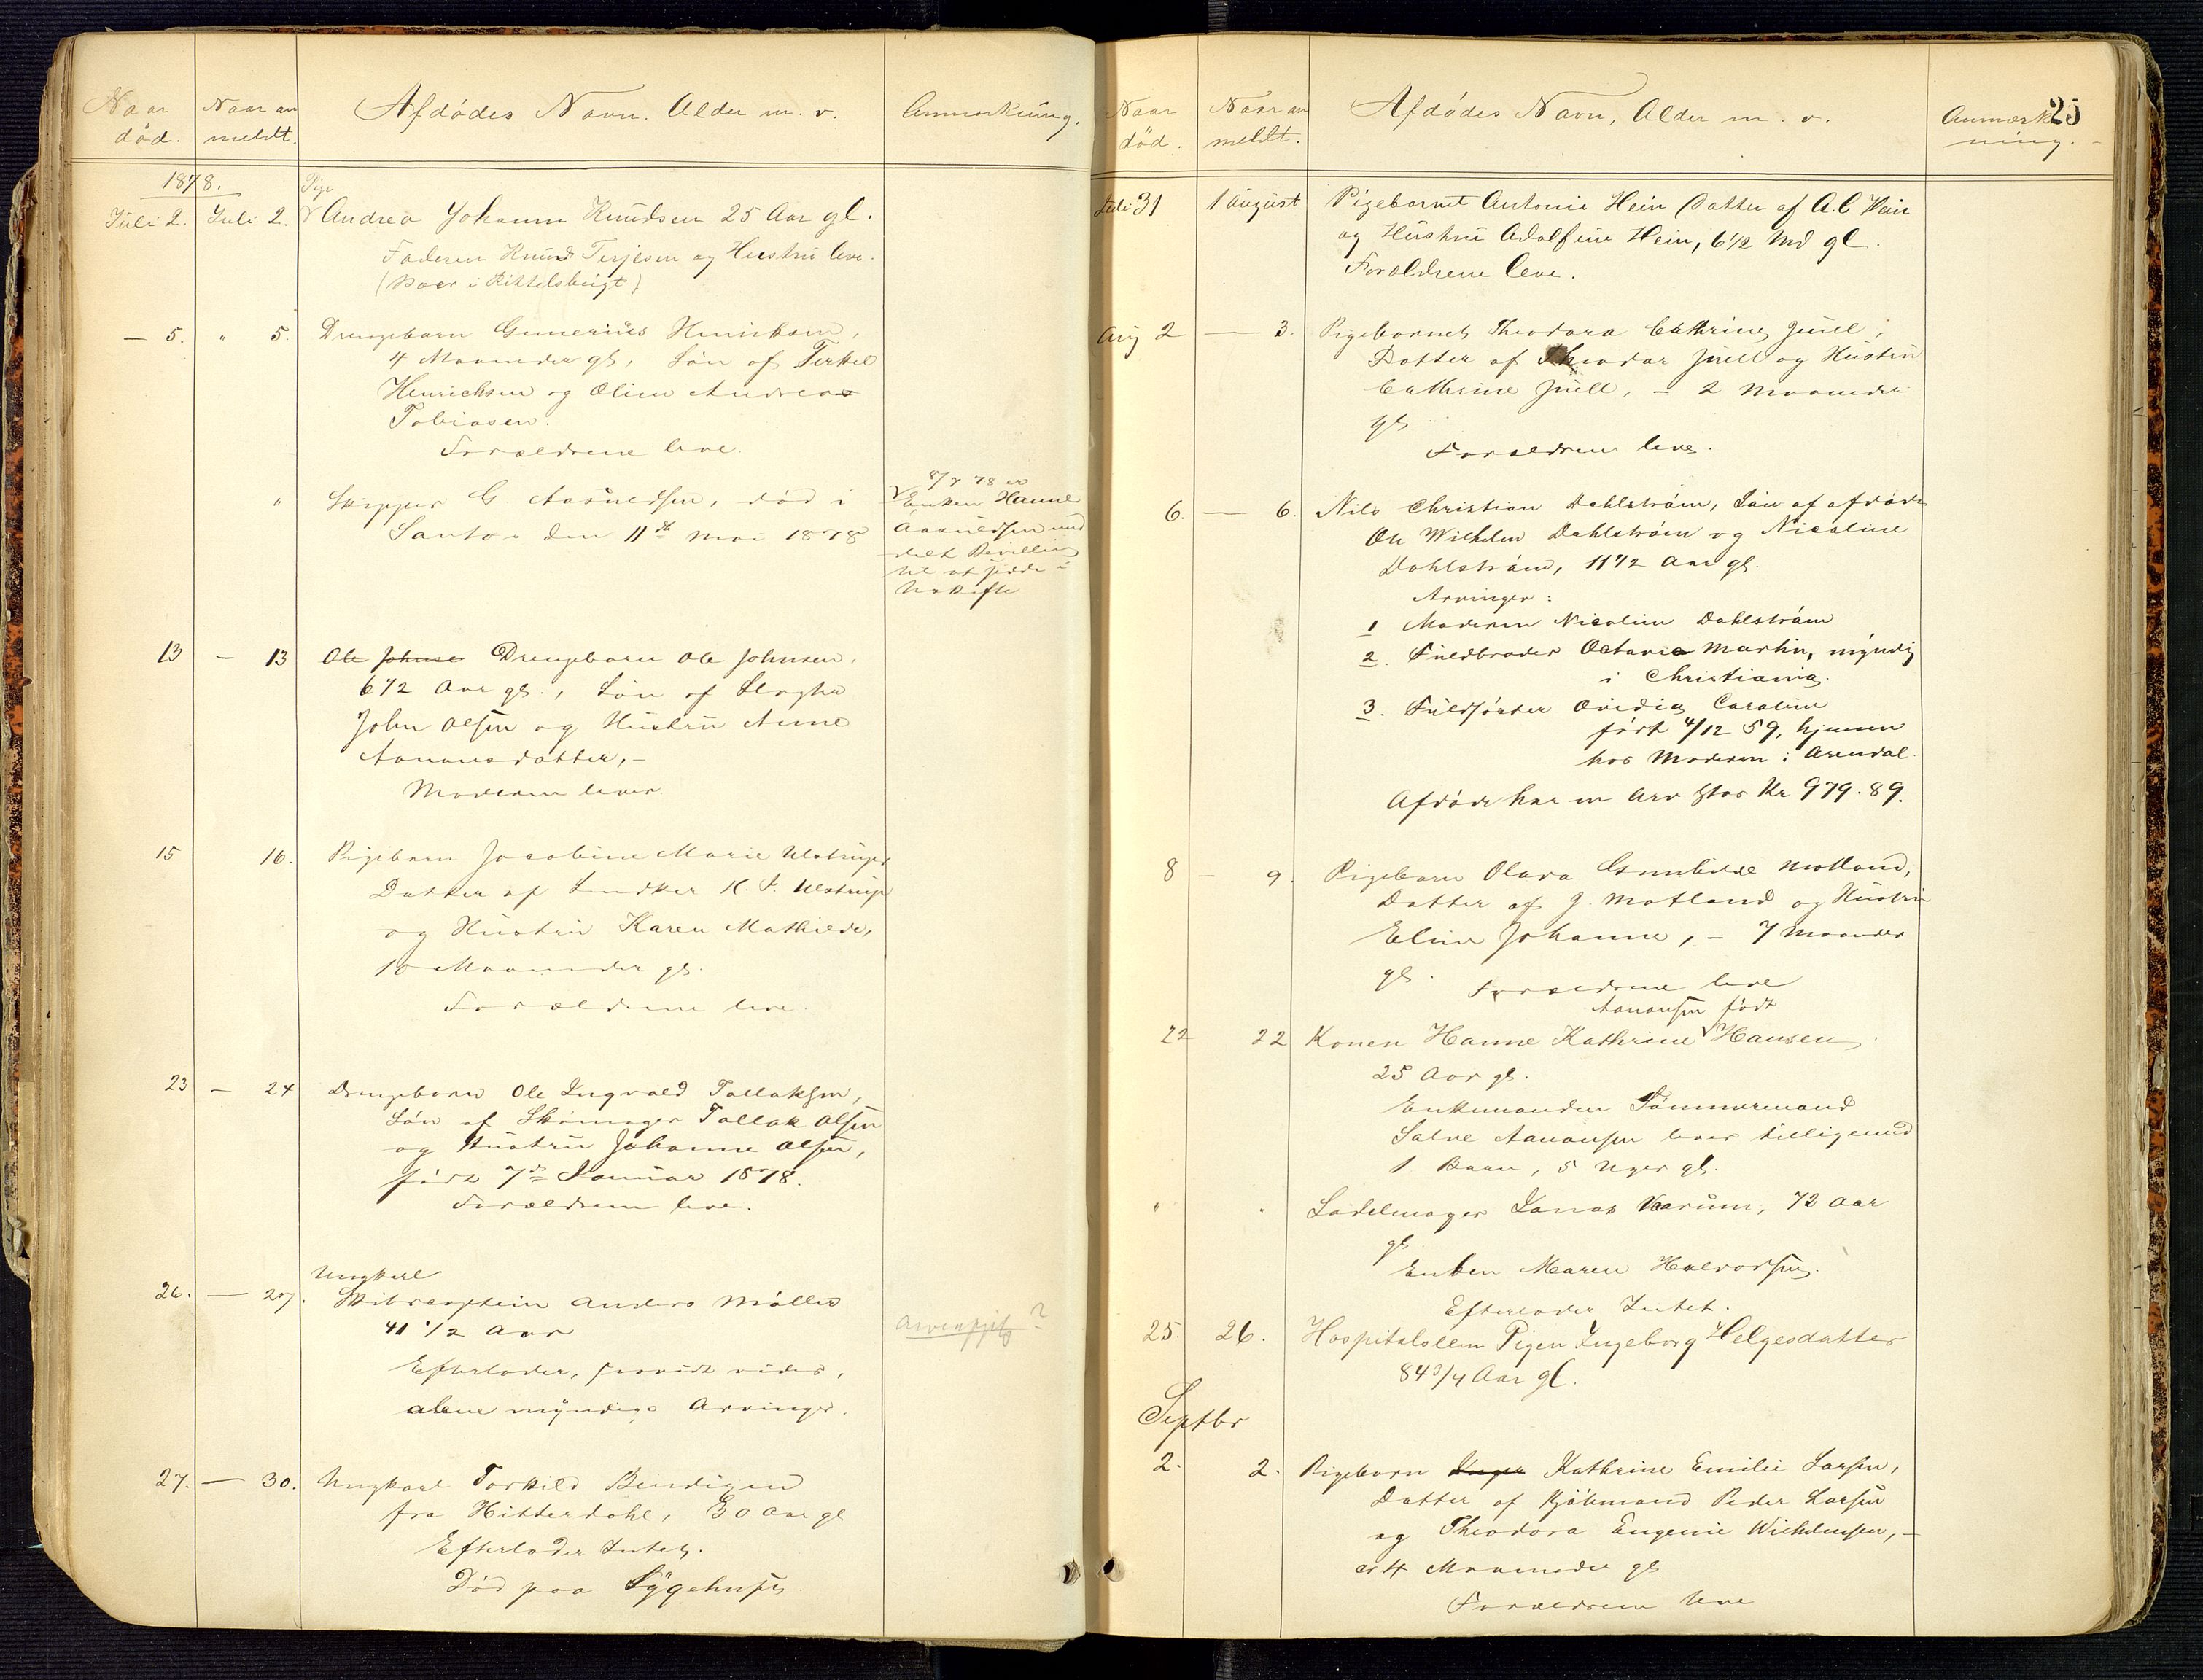 Naar død. Naar an meldt. Afdødes Navn. Alder m. v. Anmærkning.
1878.
Pige
Juli 2. Juli 2. Andrea Johanne Knudsen 25 Aar gl.
Faderen Knud Terjesen og Hustru leve.
(Boer i Kittelsbugt)
— 5. " 5. Drengebarn Gunerius Henriksen,
4 Maaneder gl, Søn af Terkel
Henrichsen og Oline Andrea
Tobiasen.
Forældrene leve.
" Skipper G. Aasuldsen, død i
Santos den 11te Mai 1878
8/7 78 er
Enken Hanne
Aasuldsen med
delt Bevilling
til at sidde i
Uskifte
13 — 13 Ole Johnse Drengebarn Ole Johnsen,
6 1/2 Aar gl., Søn af
John Olsen og Hustru Anne
Aanonsdatter, —
Moderen lever.
15 16. Pigebarn Jacobine Marie Ulstrup,
Datter af Snedker K. F. Ulstrup
og Hustru Karen Mathilde,
10 Maaneder gl.
Forældrene leve.
23 — 24 Drengebarn Ole Ingvald Tallaksen,
Søn af Skomager Tallak Olsen
og Hustru Johanne Olsen,
født 7de Januar 1878.
Forældrene leve.
Ungkarl
26. — 27. Skibscaptein Anders Møller
41 1/2 Aar
Efterlader, saavidt vides,
alene myndige Arvinger.
Arveafgift?
27. — 30. Ungkarl Torkild Bendixen
fra Hitterdahl, 30 Aar gl
Efterlader Intet.
Død paa Sygehuset
Naar død. Naar an meldt. Afdødes Navn, Alder m. v. Anmærkning.
25
Juli 31 1 August Pigebarnet Antonie Hein Datter af A. C. Hein
og Hustru Adolfine Hein, 6 1/2 Md gl.
Forældrene leve.
Aug 2 — 3. Pigebarnet Theodora Cathrine Juell,
Datter af Theodor Juell og Hustru
Cathrine Juell, — 2 Maaneder
gl
Forældrene leve.
6. — 6. Nils Christian Dahlstrøm, Søn af afdøde
Ole Wilhelm Dahlstrøm og Nicoline
Dahlstrøm, 11 1/2 Aar gl.
Arvinger:
1 Moderen Nicoline Dahlstrøm
2. Fuldbroder Octavio Martin, myndig
i Christiania.
3. Fuldsøster Ovidia Caroline
født 4/12 59, hjemme
hos Moderen i Arendal.
Afdøde har en Arv stor Kr 979.89.
8 — 9. Pigebarn Olava Gunhilde Motland,
Datter af J. Motland og Hustru
Eline Johanne, — 7 Maaneder
gl.
Forældrene leve
Aanonsen født
22 22 Konen Hanne Kathrine Hansen,
25 Aar gl.
Enkemanden Tømmermand
Salve Aanonsen lever tilligemed
1 Barn, 5 Uger gl.
" " Sadelmager Jonas Varum, 72 Aar
gl
Enken Maren Halvorsen.
Efterlader Intet.
25. 26. Hospitalslem Pigen Ingeborg Helgesdatter
84 3/4 Aar gl.
Septbr
2. 2. Pigebarn Inger Kathrine Emilie Larsen,
Datter af Kjøbmand Peder Larsen
og Theodora Eugenie Wilhelmsen, —
4 Maaneder gl
Forældrene leve